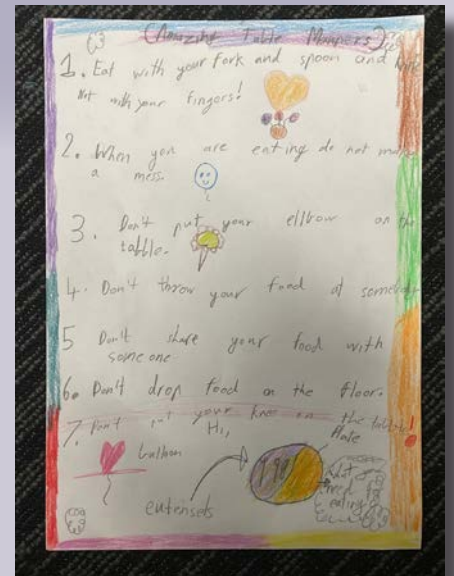 (Amazing Table Manners)
1. Eat with your fork and spoon and knife
Not with your fingers!
2. When you are eating do not make
a mess.
3. Don't put your ellbow on the
tabble.
4. Don't throw your food at somebody
5 Don't share your food with
someone
6. Don't drop food on the floor.
7. Don't put your knee on the tabble!
Hi,
Plate
balloon
eating